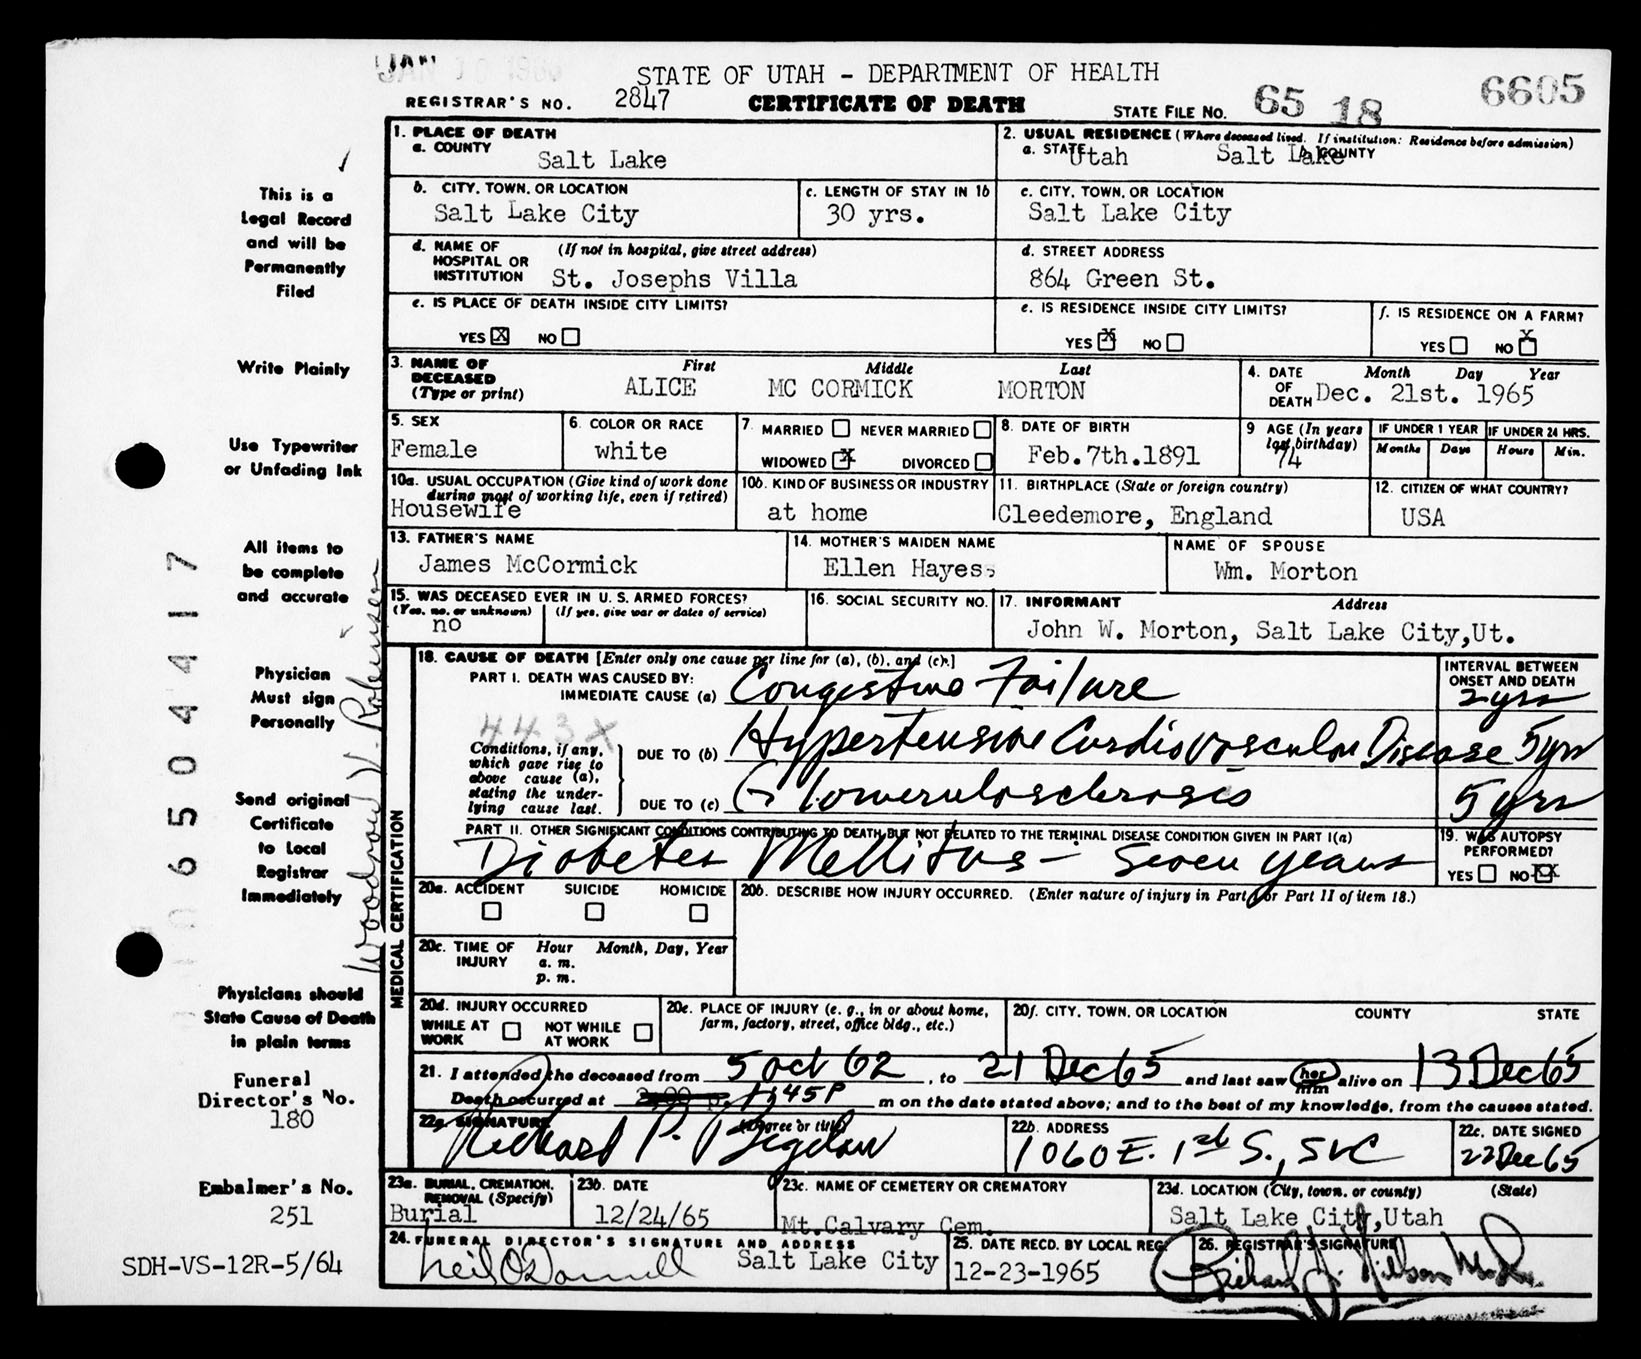 JAN 10 1966
STATE OF UTAH - DEPARTMENT OF HEALTH
REGISTRAR'S NO. 2847 CERTIFICATE OF DEATH STATE FILE NO. 65 18 6605
1. PLACE OF DEATH
a. COUNTY Salt Lake
2. USUAL RESIDENCE (Where deceased lived. If institution: Residence before admission)
a. STATE Utah b. COUNTY Salt Lake
b. CITY, TOWN, OR LOCATION
Salt Lake City
c. LENGTH OF STAY IN 1b
30 yrs.
c. CITY, TOWN, OR LOCATION
Salt Lake City
d. NAME OF HOSPITAL OR INSTITUTION (If not in hospital, give street address)
St. Josephs Villa
d. STREET ADDRESS
864 Green St.
e. IS PLACE OF DEATH INSIDE CITY LIMITS?
YES X NO
e. IS RESIDENCE INSIDE CITY LIMITS?
YES X NO
f. IS RESIDENCE ON A FARM?
YES NO X
3. NAME OF DECEASED (Type or print)
First Middle Last
ALICE MC CORMICK MORTON
4. DATE OF DEATH Month Day Year
Dec. 21st. 1965
5. SEX
Female
6. COLOR OR RACE
white
7. MARRIED NEVER MARRIED
WIDOWED X DIVORCED
8. DATE OF BIRTH
Feb.7th.1891
9 AGE (In years last birthday)
74
IF UNDER 1 YEAR
Months Days
IF UNDER 24 HRS.
Hours Min.
10a. USUAL OCCUPATION (Give kind of work done during most of working life, even if retired)
Housewife
10b. KIND OF BUSINESS OR INDUSTRY
at home
11. BIRTHPLACE (State or foreign country)
Cleedemore, England
12. CITIZEN OF WHAT COUNTRY?
USA
13. FATHER'S NAME
James McCormick
14. MOTHER'S MAIDEN NAME
Ellen Hayess
NAME OF SPOUSE
Wm. Morton
15. WAS DECEASED EVER IN U. S. ARMED FORCES?
(Yes, no, or unknown) (If yes, give war or dates of service)
no
16. SOCIAL SECURITY NO.
17. INFORMANT Address
John W. Morton, Salt Lake City,Ut.
18. CAUSE OF DEATH [Enter only one cause per line for (a), (b), and (c).]
INTERVAL BETWEEN ONSET AND DEATH
PART I. DEATH WAS CAUSED BY:
IMMEDIATE CAUSE (a) Congestive Failure 2 yrs
443X
Conditions, if any, which gave rise to above cause (a), stating the underlying cause last.
DUE TO (b) Hypertensive Cardiovascular Disease 5 yrs
DUE TO (c) Glomerulosclerosis 5 yrs
PART II. OTHER SIGNIFICANT CONDITIONS CONTRIBUTING TO DEATH BUT NOT RELATED TO THE TERMINAL DISEASE CONDITION GIVEN IN PART I(a)
Diabetes Mellitus - Seven years
19. WAS AUTOPSY PERFORMED?
YES NO X
20a. ACCIDENT SUICIDE HOMICIDE
20b. DESCRIBE HOW INJURY OCCURRED. (Enter nature of injury in Part I or Part II of item 18.)
20c. TIME OF INJURY Hour Month, Day, Year
a. m.
p. m.
20d. INJURY OCCURRED
WHILE AT WORK NOT WHILE AT WORK
20e. PLACE OF INJURY (e. g., in or about home, farm, factory, street, office bldg., etc.)
20f. CITY, TOWN, OR LOCATION COUNTY STATE
21. I attended the deceased from 5 Oct 62, to 21 Dec 65 and last saw her him alive on 13 Dec 65
Death occurred at 2:00 p. 1:45P m on the date stated above; and to the best of my knowledge, from the causes stated.
22a. SIGNATURE (Degree or title)
Richard P. Bigelow
22b. ADDRESS
1060 E. 1st S., SLC
22c. DATE SIGNED
22 Dec 65
23a. BURIAL, CREMATION, REMOVAL (Specify)
Burial
23b. DATE
12/24/65
23c. NAME OF CEMETERY OR CREMATORY
Mt.Calvary Cem.
23d. LOCATION (City, town, or county) (State)
Salt Lake City,Utah
24. FUNERAL DIRECTOR'S SIGNATURE AND ADDRESS
Neil O'Donnell Salt Lake City
25. DATE RECD. BY LOCAL REG.
12-23-1965
26. REGISTRAR'S SIGNATURE
MEDICAL CERTIFICATION
This is a
Legal Record
and will be
Permanently
Filed
Write Plainly
Use Typewriter
or Unfading Ink
All items to
be complete
and accurate
Physician
Must sign
Personally
Send original
Certificate
to Local
Registrar
Immediately
Physicians should
State Cause of Death
in plain terms
Funeral
Director's No.
180
Embalmer's No.
251
SDH-VS-12R-5/64
06504417
Woodrow V. Robinson